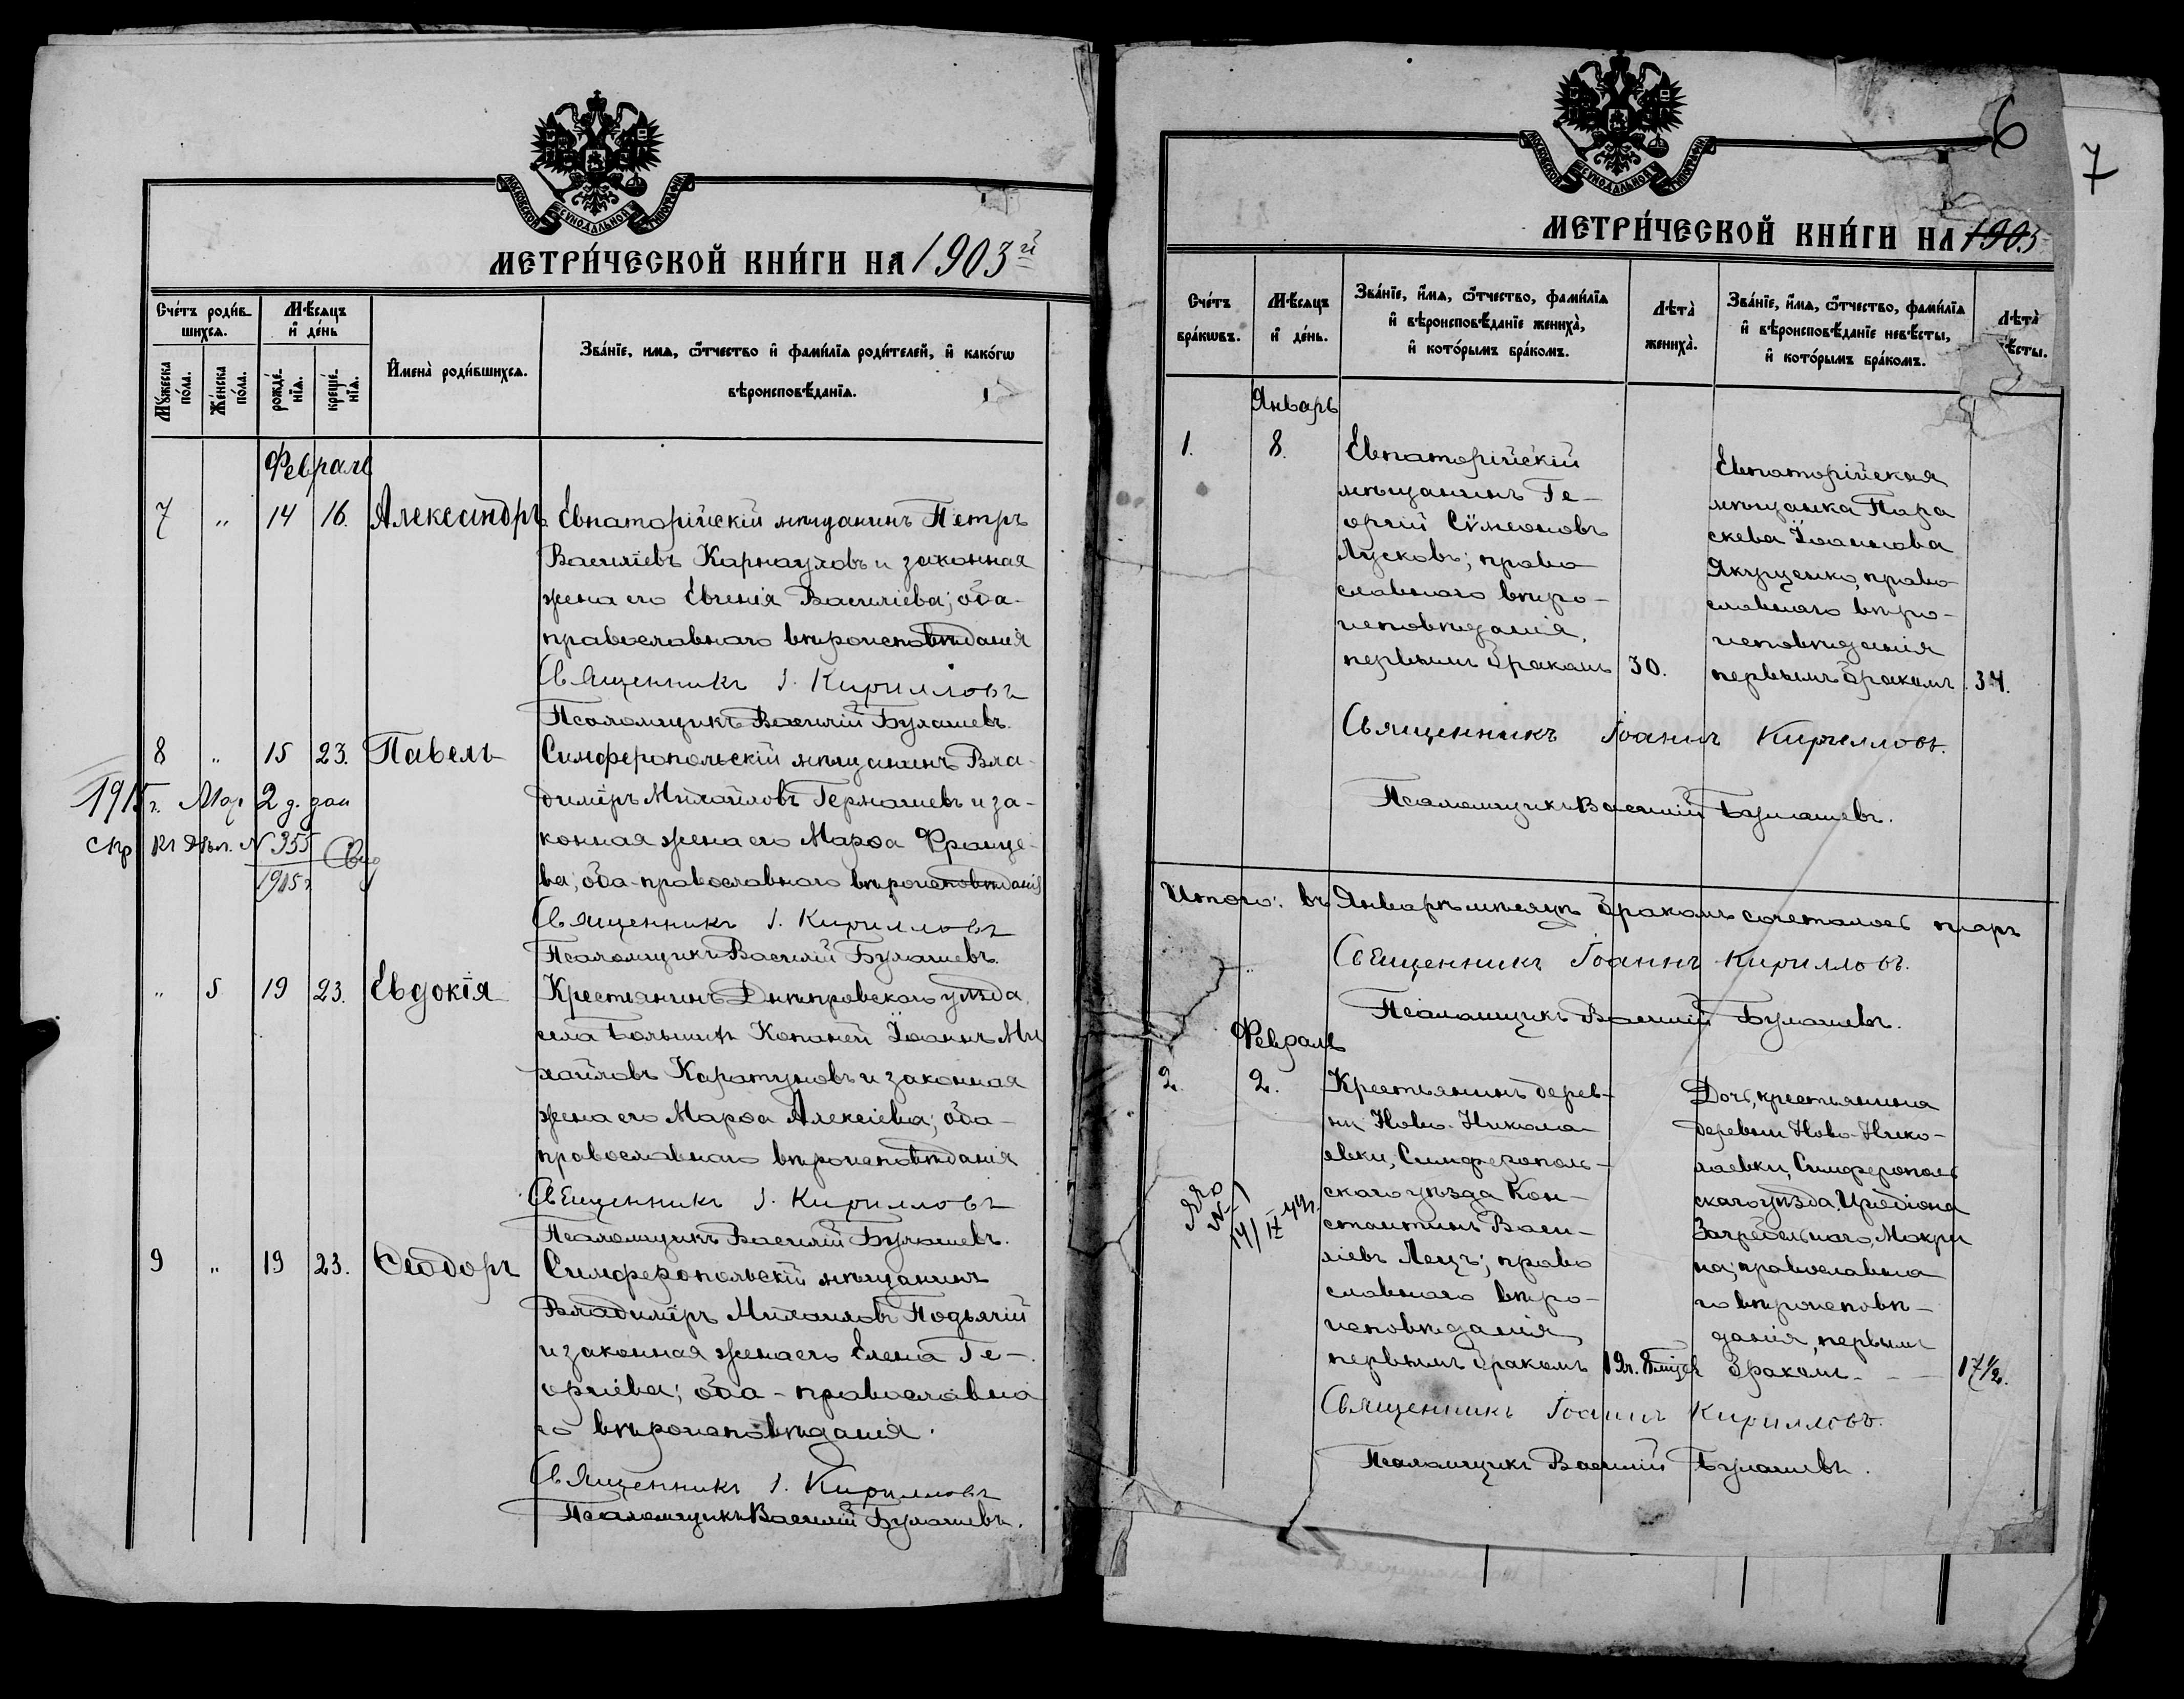 МОСКОВСКОЙ СѴНОДАЛЬНОЙ ТИПОГРАФІИ
МЕТРИ́ЧЕСКОЙ КНИ́ГИ НА 1903й
Сче́тъ роди́в-
шихсѧ.
Мѣ́сѧцъ
и҆ де́нь
Мꙋ́жеска
по́ла.
Же́нска
по́ла.
рожде́-
нїѧ.
креще́-
нїѧ.
И҆мена̀ роди́вшихсѧ.
Зва́нїе, и҆мѧ, ѻ҆́тчество и҆ фамѝлїѧ роди́телей, и҆ како́гѡ
вѣроисповѣ́данїѧ.
Февраль
7 „ 14 16. Александръ. Евпаторійскій мѣщанинъ Петръ
Василіевъ Карнауховъ и законная
жена его Евгенія Василіева; оба-
православнаго вѣроисповѣданія
Священникъ І. Кирилловъ
Псаломщикъ Василій Булашевъ.
8 „ 15 23. Павелъ Симферопольскій мѣщанинъ Вла-
диміръ Михайловъ и за-
конная жена его Марѳа Франце-
ва; оба-православнаго вѣроисповѣданія
1915 г. Мар 2 д. дан
спр. къ дѣл. № 355
1915 г
Священникъ І. Кирилловъ
Псаломщикъ Василій Булашевъ.
„ 5 19 23. Евдокія Крестьянинъ Днѣпровскаго уѣзда,
села Большихъ Копаней Іоаннъ Ми
хайловъ Каратуновъ и законная
жена его Марѳа Алексіева; оба-
православнаго вѣроисповѣданія
Священникъ І. Кирилловъ
Псаломщикъ Василій Булашевъ.
9 „ 19 23. Ѳеодоръ Симферопольскій мѣщанинъ
Владиміръ Михаиловъ Подьячій
и законная жена его Елена Ге-
оргіева; оба-православна
го вѣроисповѣданія.
Священникъ І. Кирилловъ
Псаломщикъ Василій Булашевъ.
6
7
МОСКОВСКОЙ СѴНОДАЛЬНОЙ ТИПОГРАФІИ
МЕТРИ́ЧЕСКОЙ КНИ́ГИ НА 1903
Сче́тъ
бра́кѡвъ.
Мѣ́сѧцъ
и҆ де́нь.
Зва́нїе, и҆мѧ, ѻ҆́тчество, фамѝлїѧ
и҆ вѣроисповѣ́данїе жениха̀,
и҆ кото́рымъ бра́комъ.
Лѣта̀
жениха̀.
Зва́нїе, и҆мѧ, ѻ҆́тчество, фамѝлїѧ
и҆ вѣроисповѣ́данїе невѣ́сты,
и҆ кото́рымъ бра́комъ.
Лѣта̀
ѣ́сты.
Январь
1. 8. Евпаторійскій
мѣщанинъ Ге-
оргій Сѵмеоновъ
Лусковъ; право
славнаго вѣро-
исповѣданія,
первымъ бракомъ 30.
Евпаторійская
мѣщанка Пара
скева Іоаннова
Якущенко, право-
славнаго вѣро-
исповѣданія
первымъ бракомъ 34.
Священникъ Іоаннъ Кирилловъ.
Псаломщикъ Василій Булашевъ.
Итого: въ Январѣ мѣсяцѣ бракомъ сочеталось паръ
Священникъ Іоаннъ Кирилловъ.
Псаломщикъ Василій Булашевъ.
Февраль
2. 2. Крестьянинъ дерев-
ни Ново-Никола-
евки, Симферополь-
скаго уѣзда Кон-
стантинъ Васи-
ліевъ Лецъ; право
славнаго вѣро-
исповѣданія,
первымъ бракомъ 19 л.
Дочь крестьянина
деревни Ново-Нико-
лаевки, Симферополь
скаго уѣзда,
Загребельнаго, Мокри
на; православна
го вѣроисповѣ-
данія, первымъ
бракомъ 17½.
Священникъ Іоаннъ Кирилловъ.
Псаломщикъ Василій Булашевъ.